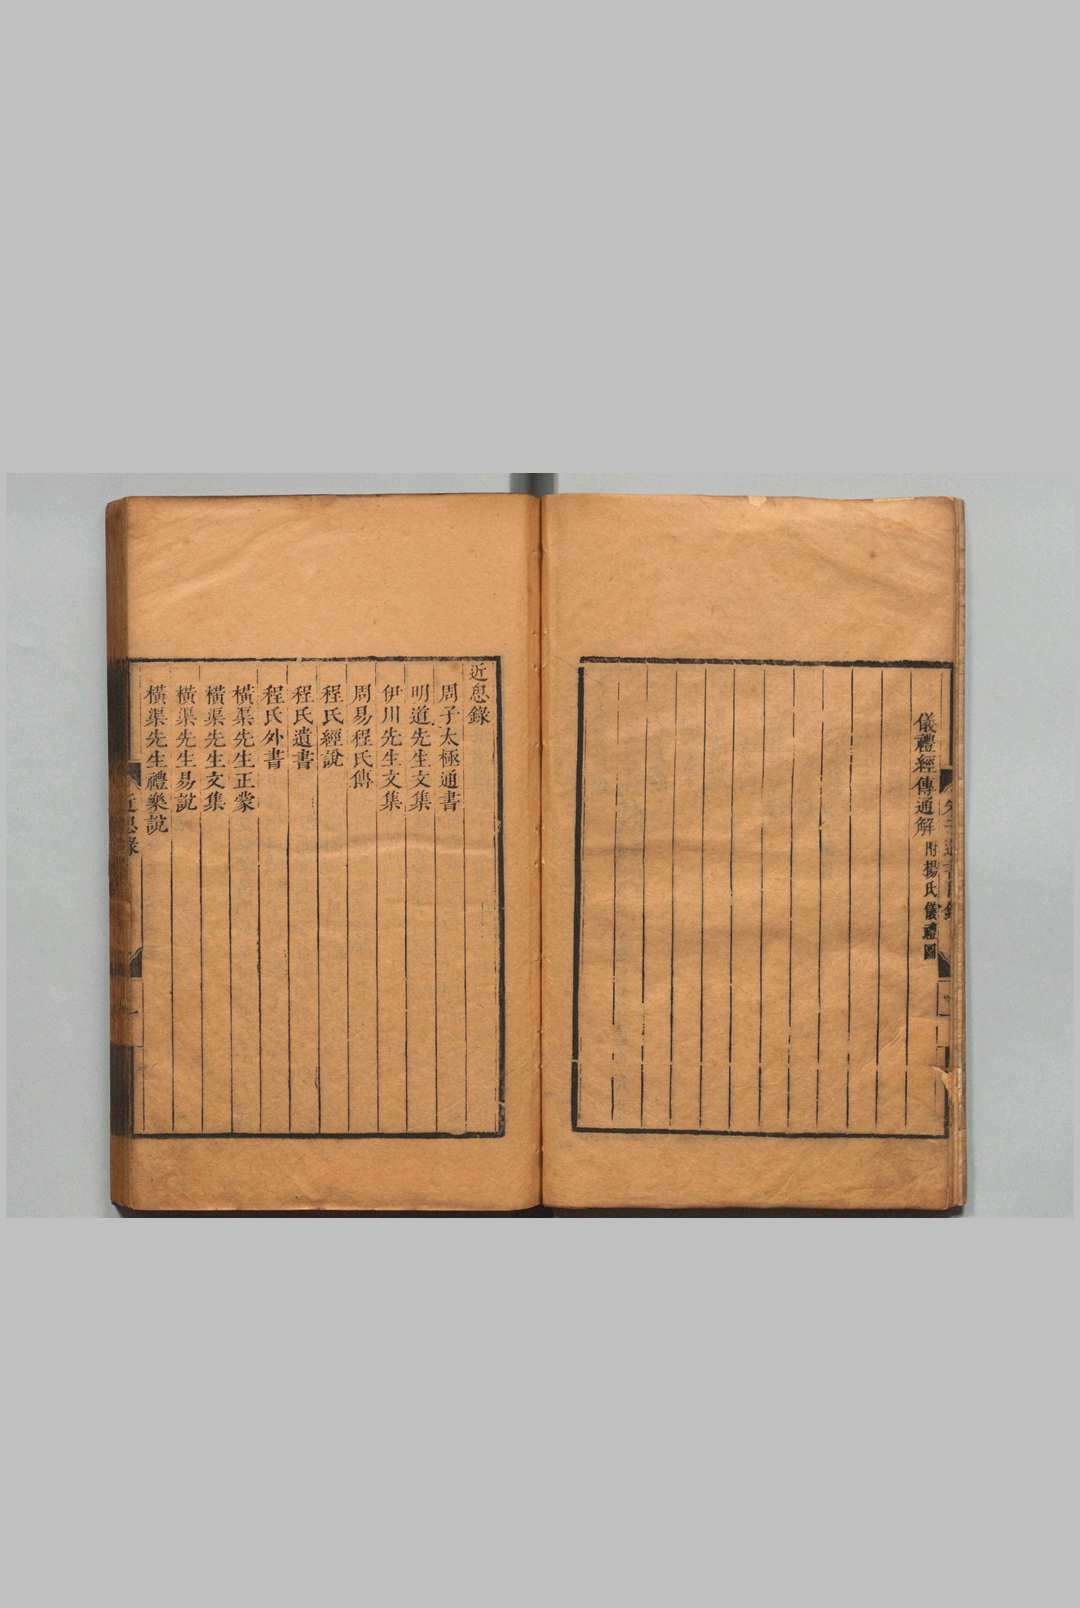 儀禮經傳通解 附楊氏儀禮圖
近思錄
周子太極通書
明道先生文集
伊川先生文集
周易程氏傳
程氏經說
程氏遺書
程氏外書
橫渠先生正蒙
橫渠先生文集
橫渠先生易說
橫渠先生禮樂說
近思錄